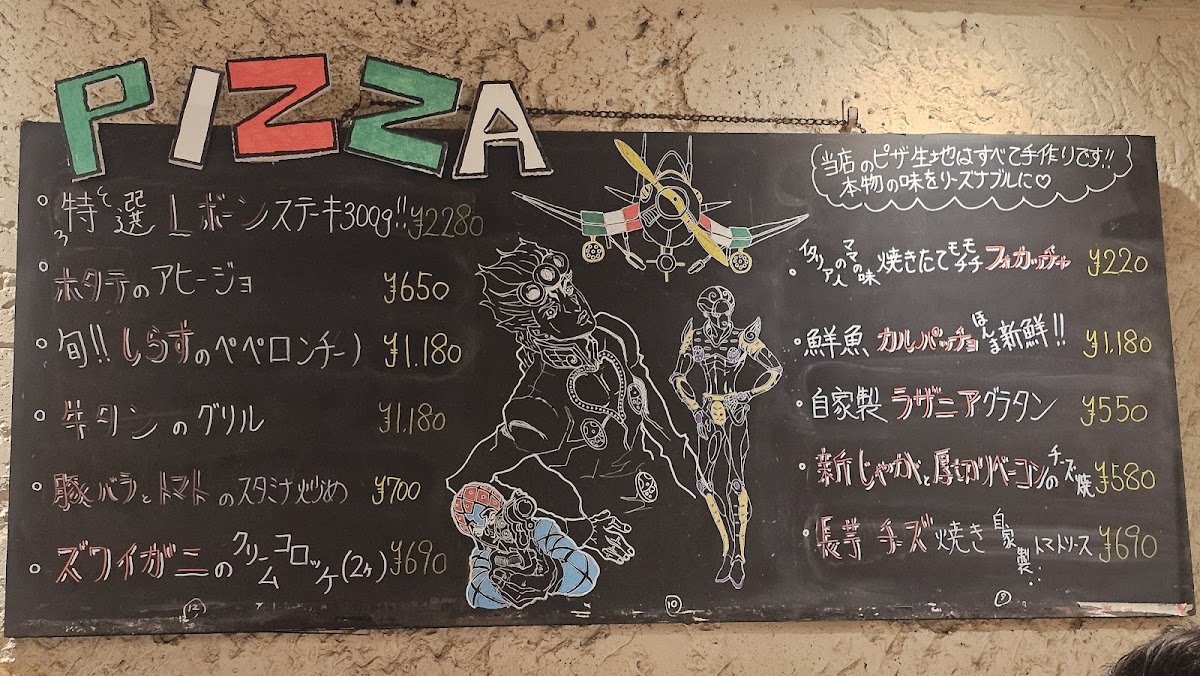 PIZZA
特選 Lボーンステーキ300g!! ¥2280
ホタテのアヒージョ ¥650
旬!! しらすのペペロンチーノ ¥1.180
牛タンのグリル ¥1.180
豚バラとトマトのスタミナ炒め ¥700
ズワイガニのクリームコロッケ(2ヶ) ¥690
12
10
当店のピザ生地はすべて手作りです!!
本物の味をリーズナブルに♡
イタリア人のママの味 焼きたてモチモチ フォカッチャ ¥220
鮮魚 カルパッチョ ほんま新鮮!! ¥1.180
自家製 ラザニアグラタン ¥550
新じゃがと厚切りベーコンのチーズ焼 ¥580
長芋 チーズ焼き 自家製 トマトソース ¥690
9